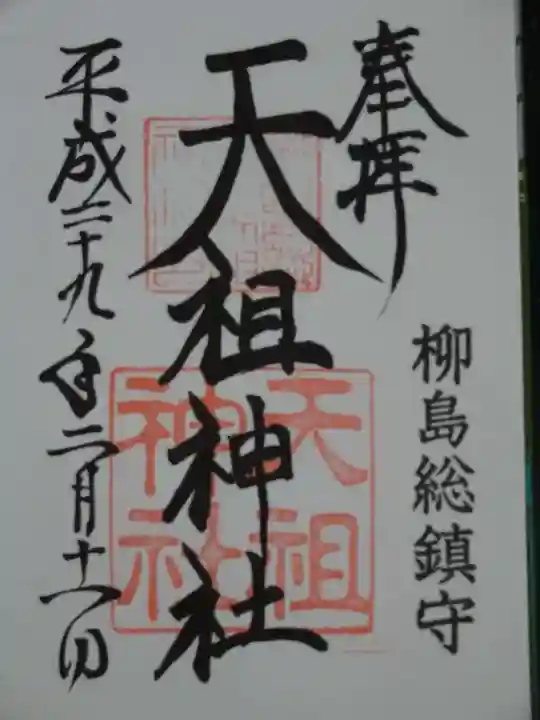 奉拝
柳島総鎮守
天祖神社
天祖
神社
平成二十九年二月十八日